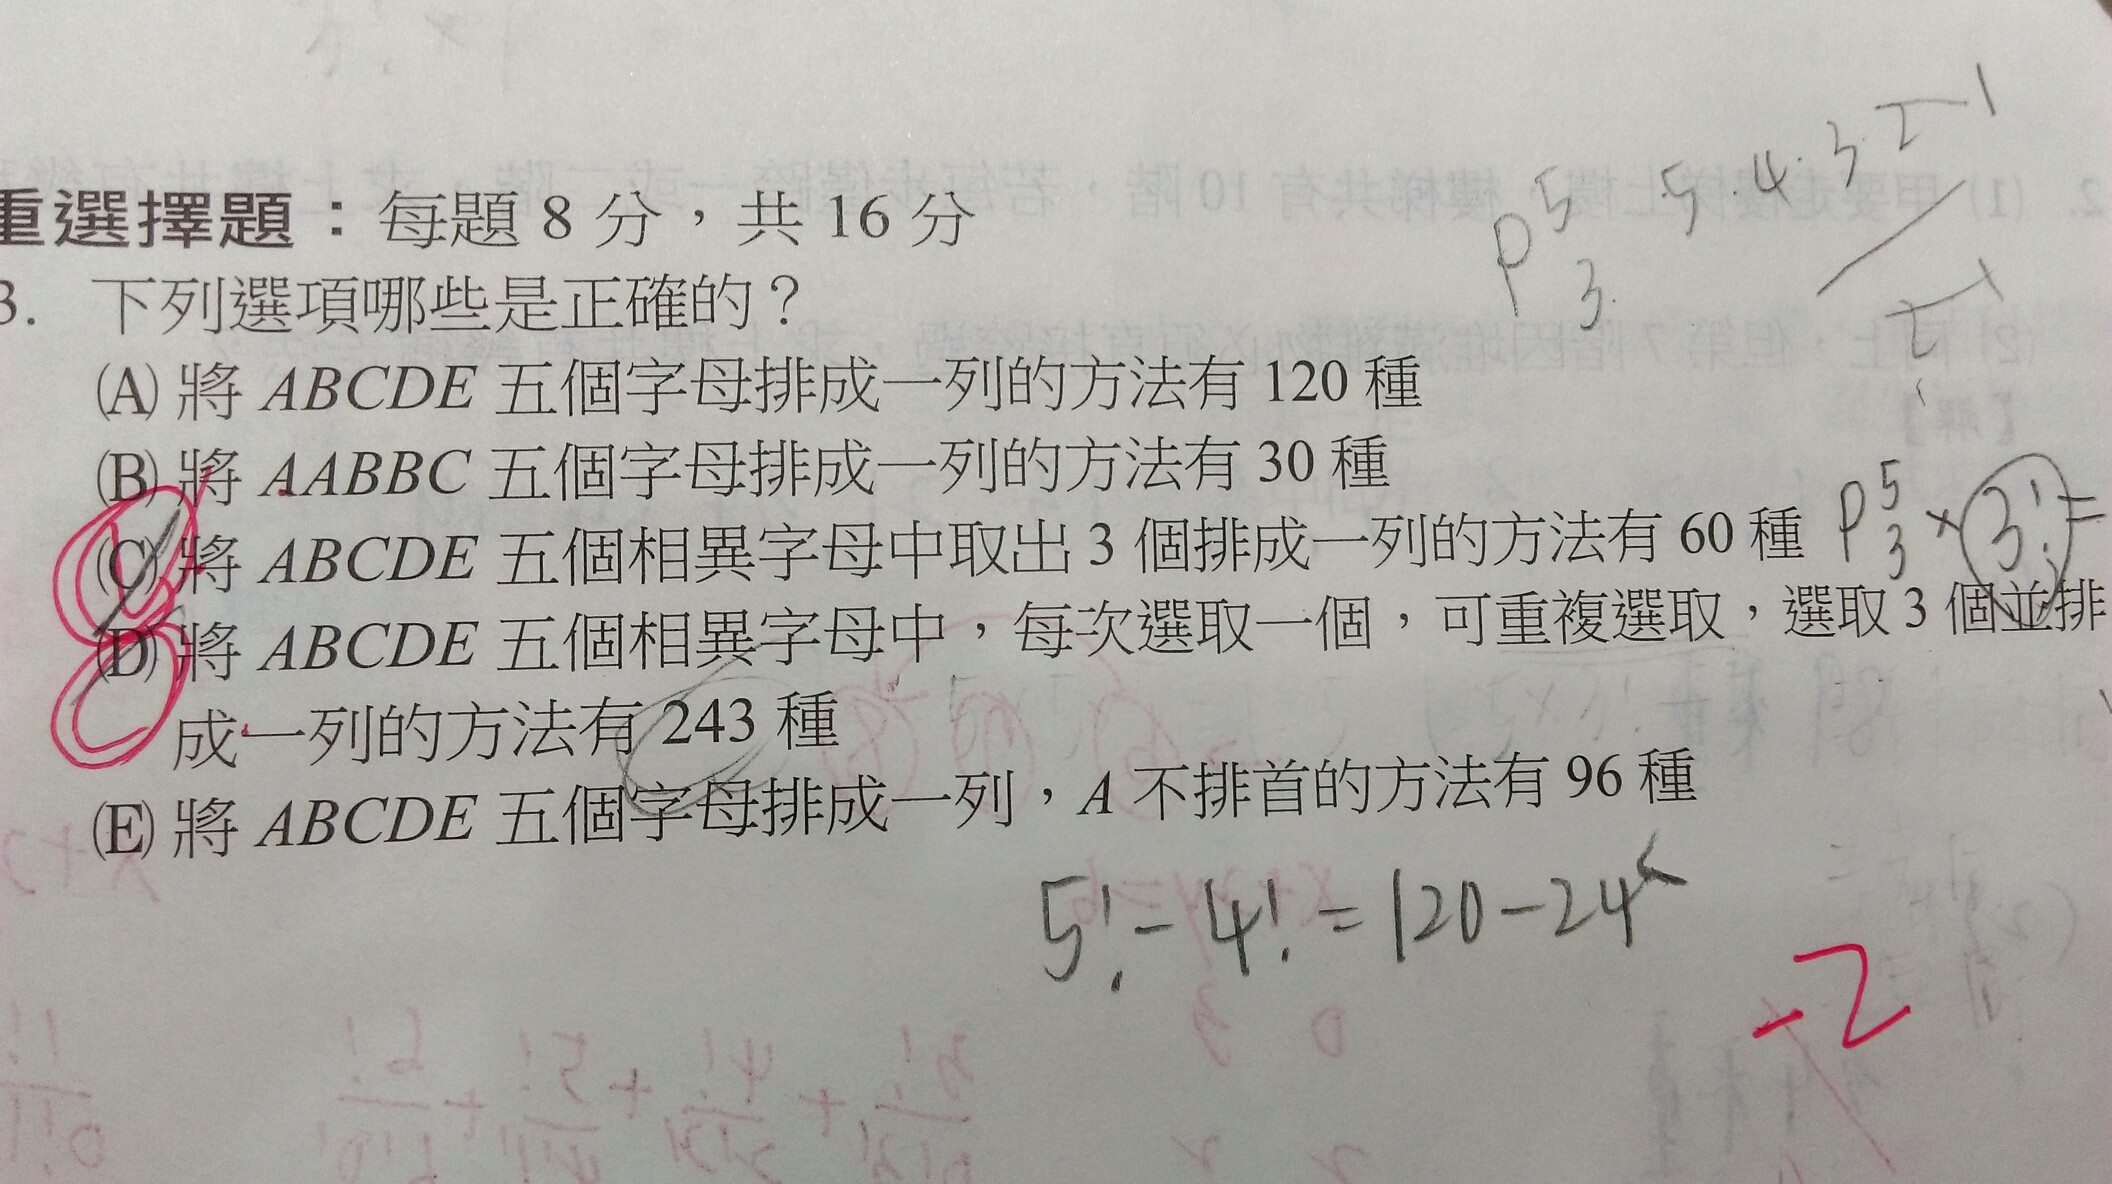 重選擇題：每題 8 分，共 16 分
3. 下列選項哪些是正確的？
(A) 將 ABCDE 五個字母排成一列的方法有 120 種
(B) 將 AABBC 五個字母排成一列的方法有 30 種
(C) 將 ABCDE 五個相異字母中取出 3 個排成一列的方法有 60 種
(D) 將 ABCDE 五個相異字母中，每次選取一個，可重複選取，選取 3 個並排
成一列的方法有 243 種
(E) 將 ABCDE 五個字母排成一列，A 不排首的方法有 96 種
P 5 3 5·4·3·2·1
2·1
P 5 3 × 3! =
5! - 4! = 120 - 24
-2